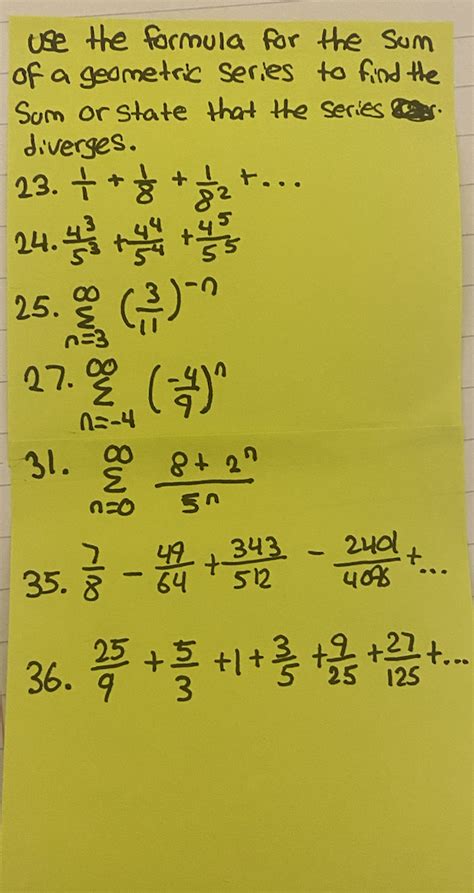 use the formula for the sum
of a geometric series to find the
Sum or state that the series
diverges.
23. 1/1 + 1/8 + 1/8² + ...
24. 4³/5³ + 4⁴/5⁴ + 4⁵/5⁵
25. ∞ Σ n=3 (3/11)⁻ⁿ
27. ∞ Σ n=-4 (-4/9)ⁿ
31. ∞ Σ n=0 8 + 2ⁿ/5ⁿ
35. 7/8 - 49/64 + 343/512 - 2401/4096 + ...
36. 25/9 + 5/3 + 1 + 3/5 + 9/25 + 27/125 + ...